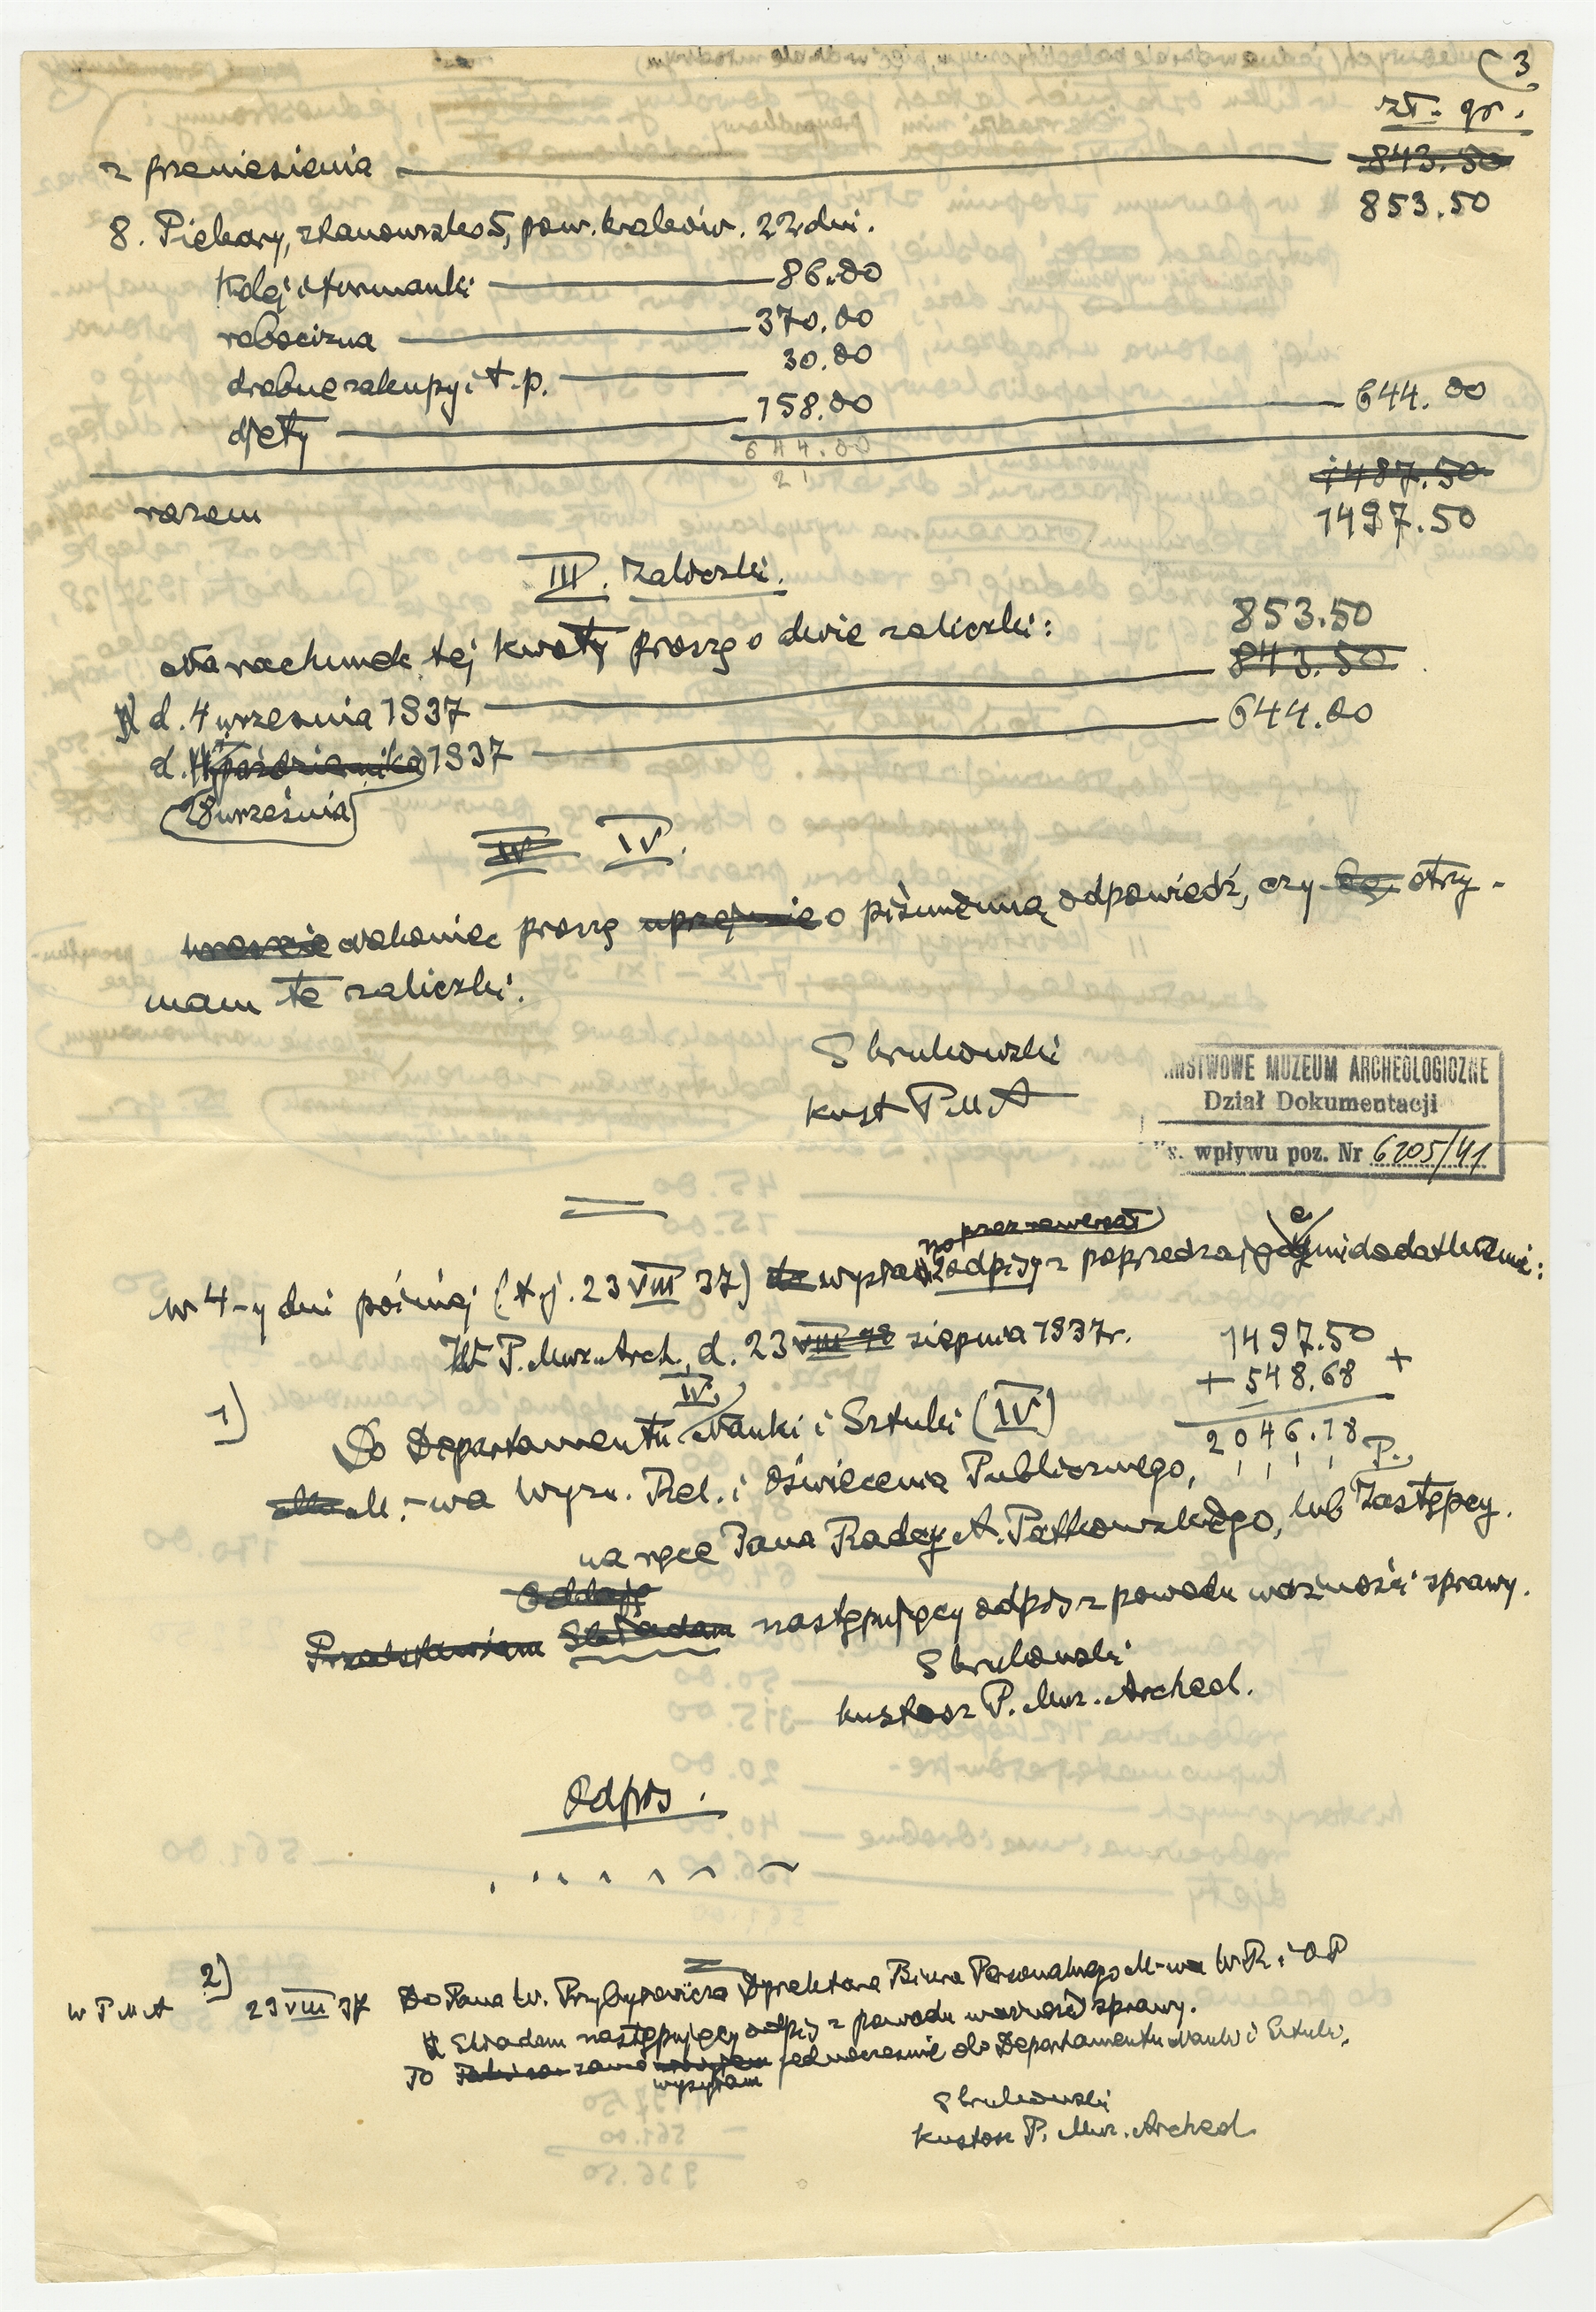 3
zł. gr.
z przeniesienia 843.50
853.50
8. Piekary, stanowisko 5, pow. Kraków. 22 dni.
Kolej i furmanki 86.00
robocizna 370.00
drobne zakupy i t.p. 30.00
djety 158.00 644.00
644.00
21
1487.50
razem 1497.50
III. Zaliczki.
Na rachunek tej kwoty proszę o dwie zaliczki: 853.50
843.50
d. 4 września 1937 644.00
d. października 1937
28 września
IV IV.
wreszcie nakoniec proszę uprzejmie o piśmienną odpowiedź, czy otrzy-
mam te zaliczki.
S Krukowski
kust P.M.A
PAŃSTWOWE MUZEUM ARCHEOLOGICZNE
Dział Dokumentacji
Ks. wpływu poz. Nr 6205/41
przez
w 4-y dni później (t.j. 23 VIII 37) odpisy z poprzedzającemi dodatkami:
W P. Muz. Arch., d. 23 VIII sierpnia 1937r. 1497.50
+ 548.68 +
2046.18
1) Do Departamentu IV Nauki i Sztuki (IV)
M-wa Wyzn. Rel. i Oświecenia Publicznego, P.
na ręce Pana Radcy A. Patkowskiego, lub Zastępcy.
Oddaję
Przedstawiam Składam następujący odpis z powodu ważności sprawy.
S Krukowski
kustosz P. Muz. Archeol.
Odpis.
2)
w P M A 23 VIII 37 Do Pana W. Przybyłowicza Dyrektora Biura Personalnego M-wa W.R. i O P
Składam następujący odpis z powodu ważności sprawy.
To samo jednocześnie do Departamentu Nauki i Sztuki.
wysyłam
S Krukowski
kustosz P. Muz. Archeol.